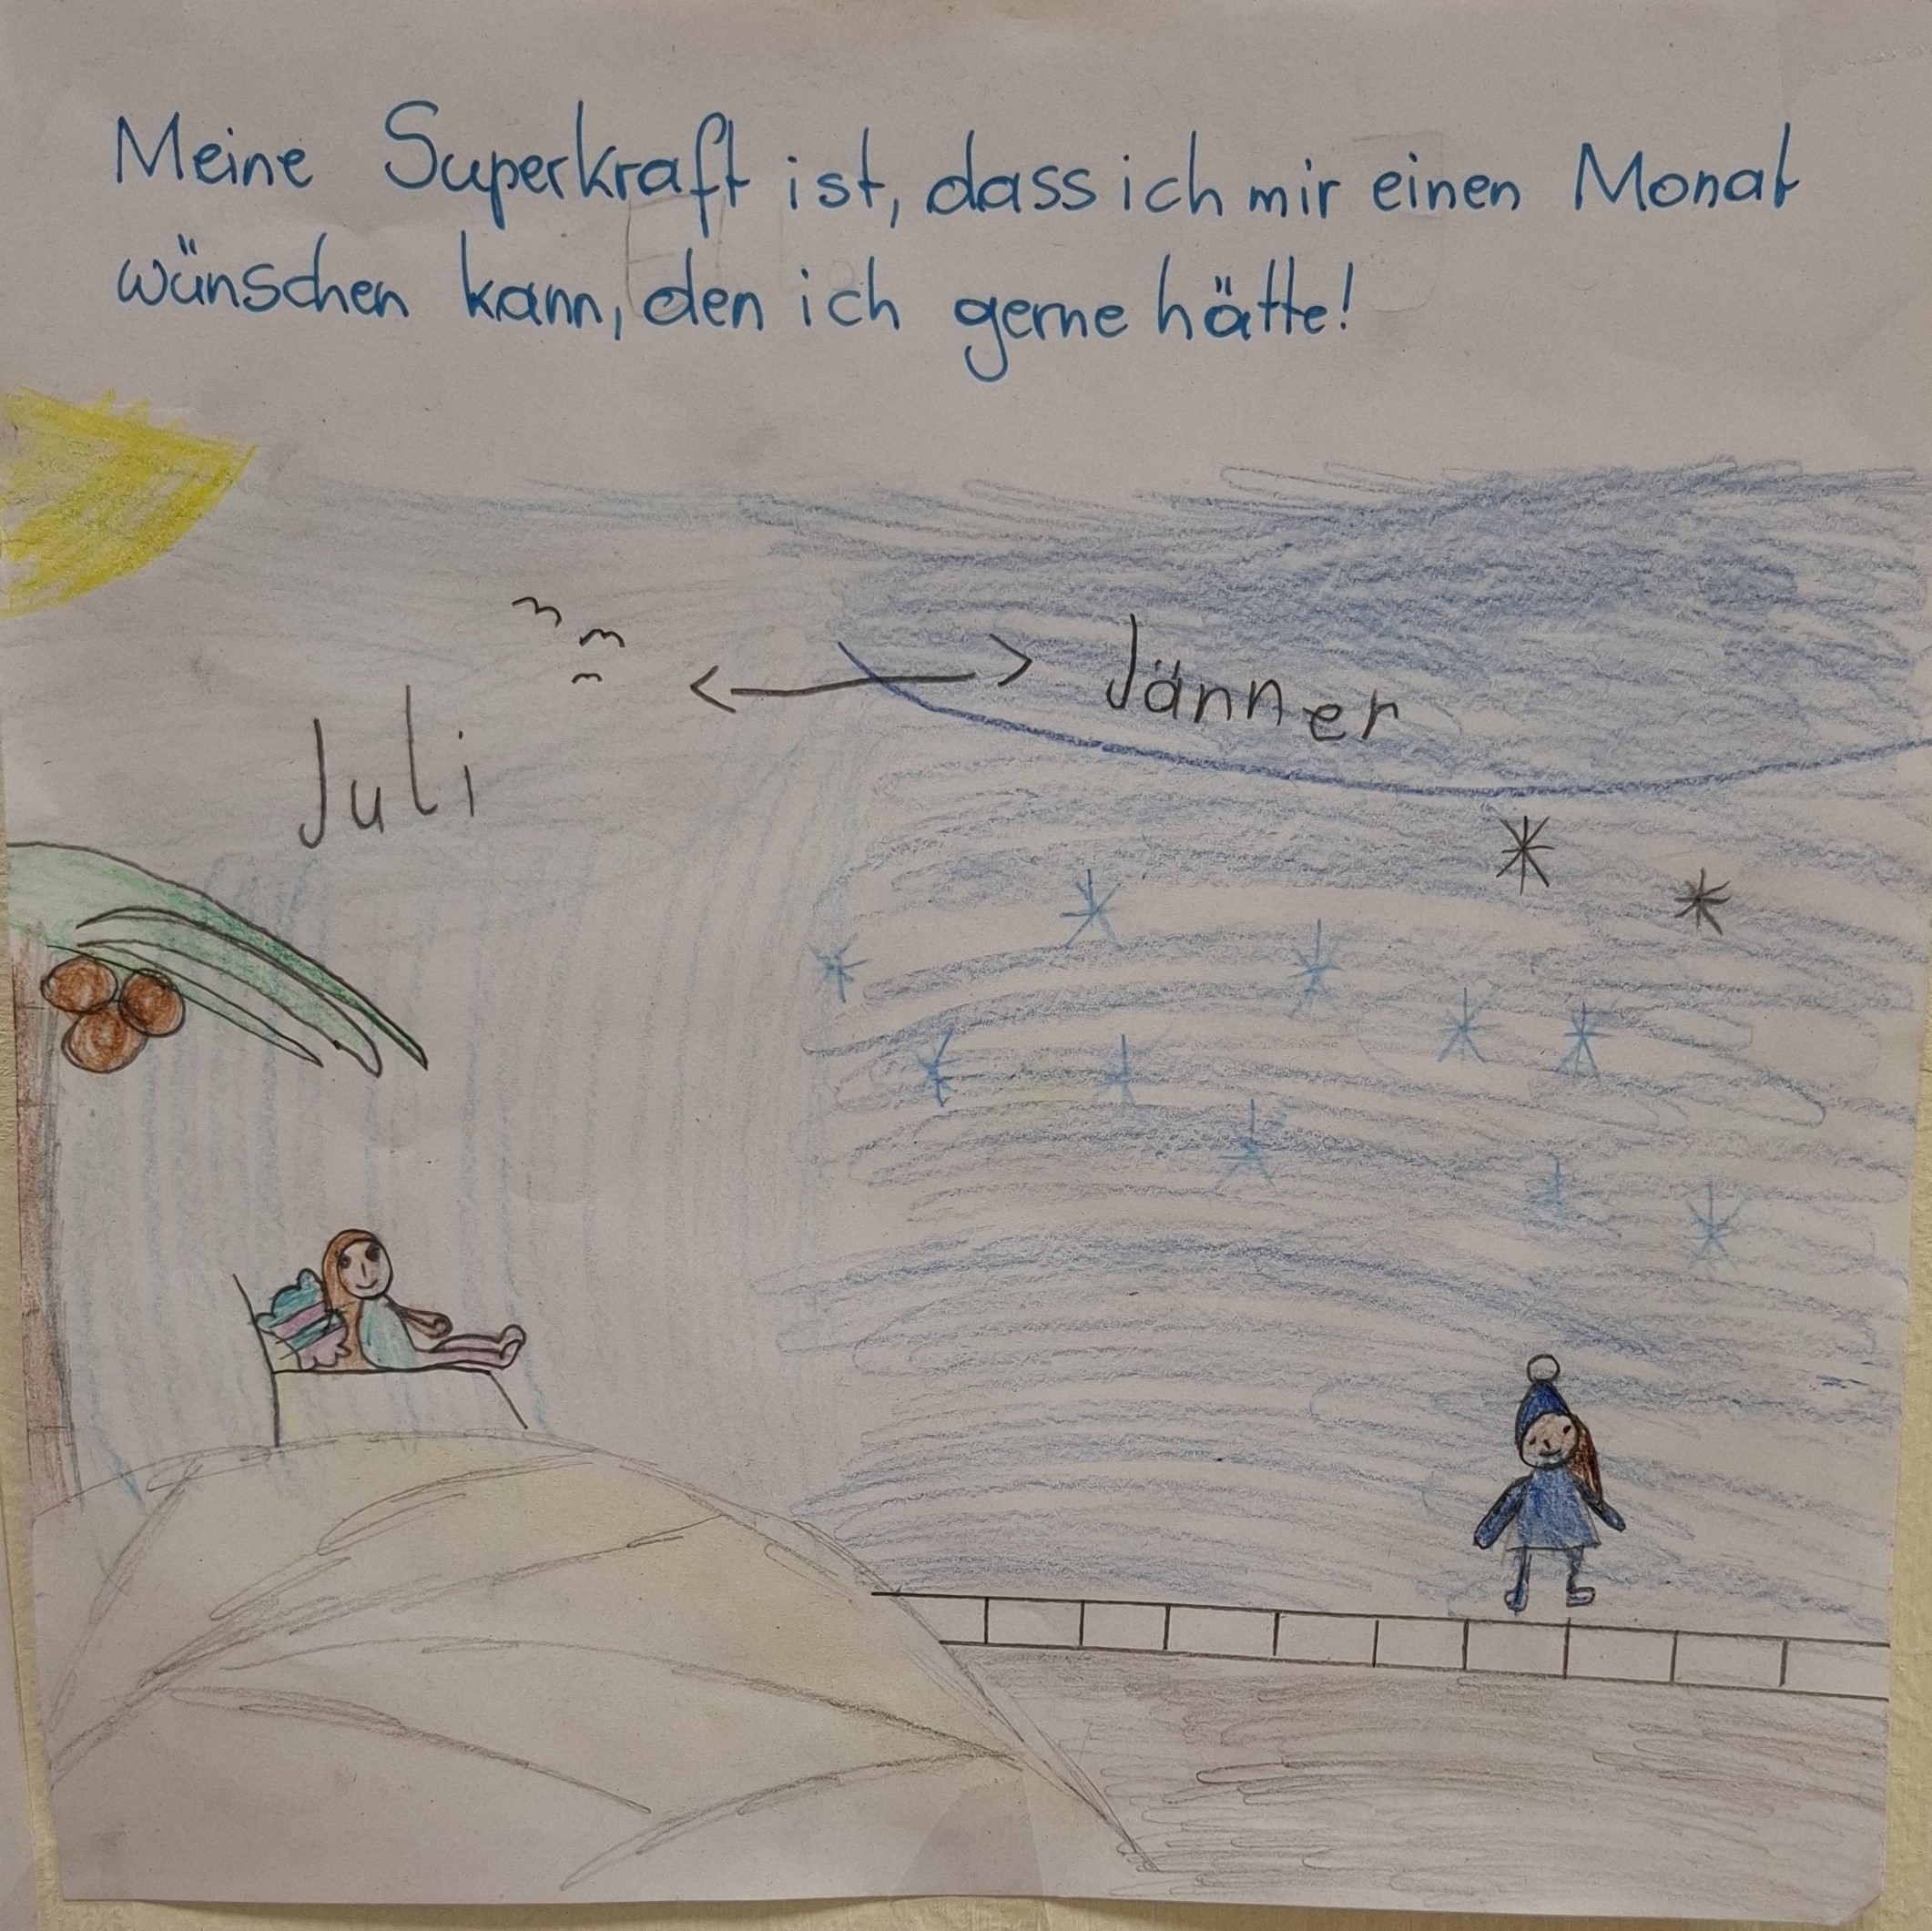 Meine Superkraft ist, dass ich mir einen Monat
wünschen kann, den ich gerne hätte!
Juli
Jänner